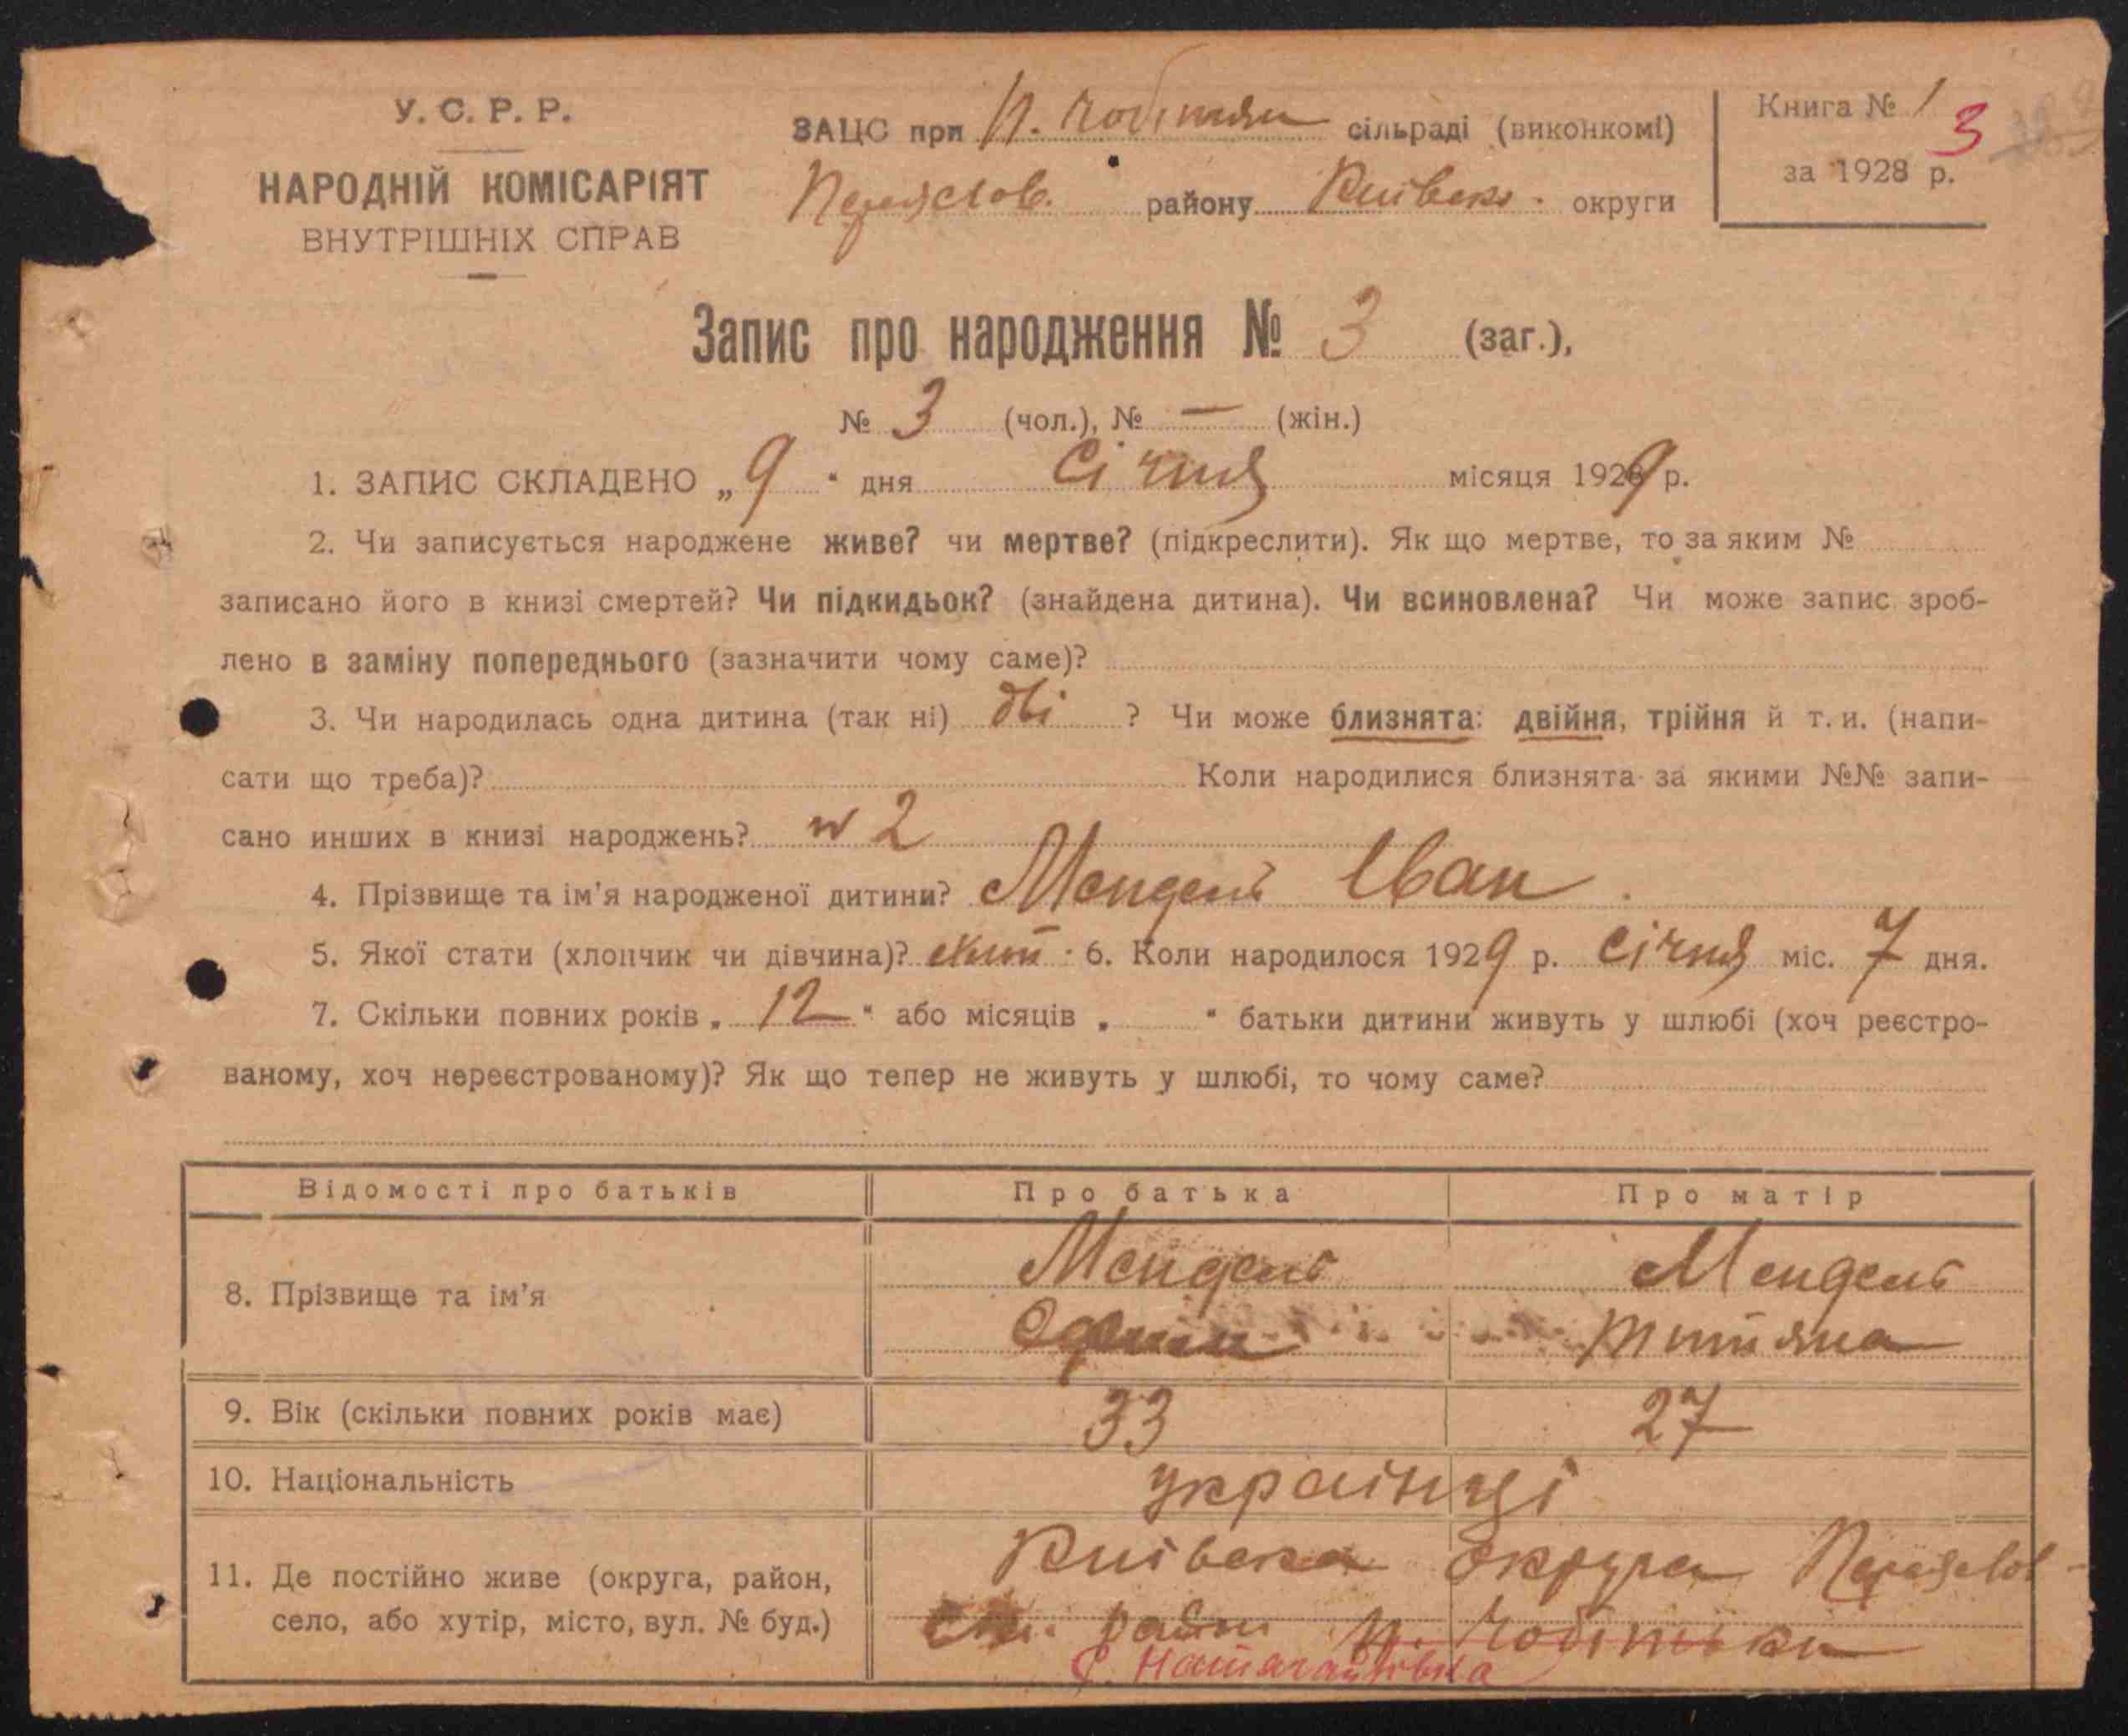 У. С. Р. Р.
НАРОДНІЙ КОМІСАРІЯТ
ВНУТРІШНІХ СПРАВ
ЗАЦС при сільраді (виконкомі)
Переяслов. району Київськ. округи
Книга № 1
3
за 1928 р.
Запис про народження № 3 (заг.),
№ 3 (чол.), № — (жін.)
1. ЗАПИС СКЛАДЕНО „9" дня Січня місяця 1929 р.
2. Чи записується народжене живе? чи мертве? (підкреслити). Як що мертве, то за яким №
записано його в книзі смертей? Чи підкидьок? (знайдена дитина). Чи всиновлена? Чи може запис зроб-
лено в заміну попереднього (зазначити чому саме)?
3. Чи народилась одна дитина (так ні) дві ? Чи може близнята: двійня, трійня й т. и. (напи-
сати що треба)? Коли народилися близнята за якими №№ запи-
сано инших в книзі народжень? № 2
4. Прізвище та ім'я народженої дитини? Мендель Іван
5. Якої стати (хлопчик чи дівчина)? 6. Коли народилося 1929 р. Січня міс. 7 дня.
7. Скільки повних років „ 12 " або місяців „ " батьки дитини живуть у шлюбі (хоч реєстро-
ваному, хоч нереєстрованому)? Як що тепер не живуть у шлюбі, то чому саме?
Відомості про батьків Про батька Про матір
8. Прізвище та ім'я Мендель Мендель
9. Вік (скільки повних років має) 33 27
10. Національність українці
11. Де постійно живе (округа, район,
село, або хутір, місто, вул. № буд.)
Київська округа Переяслов-
район